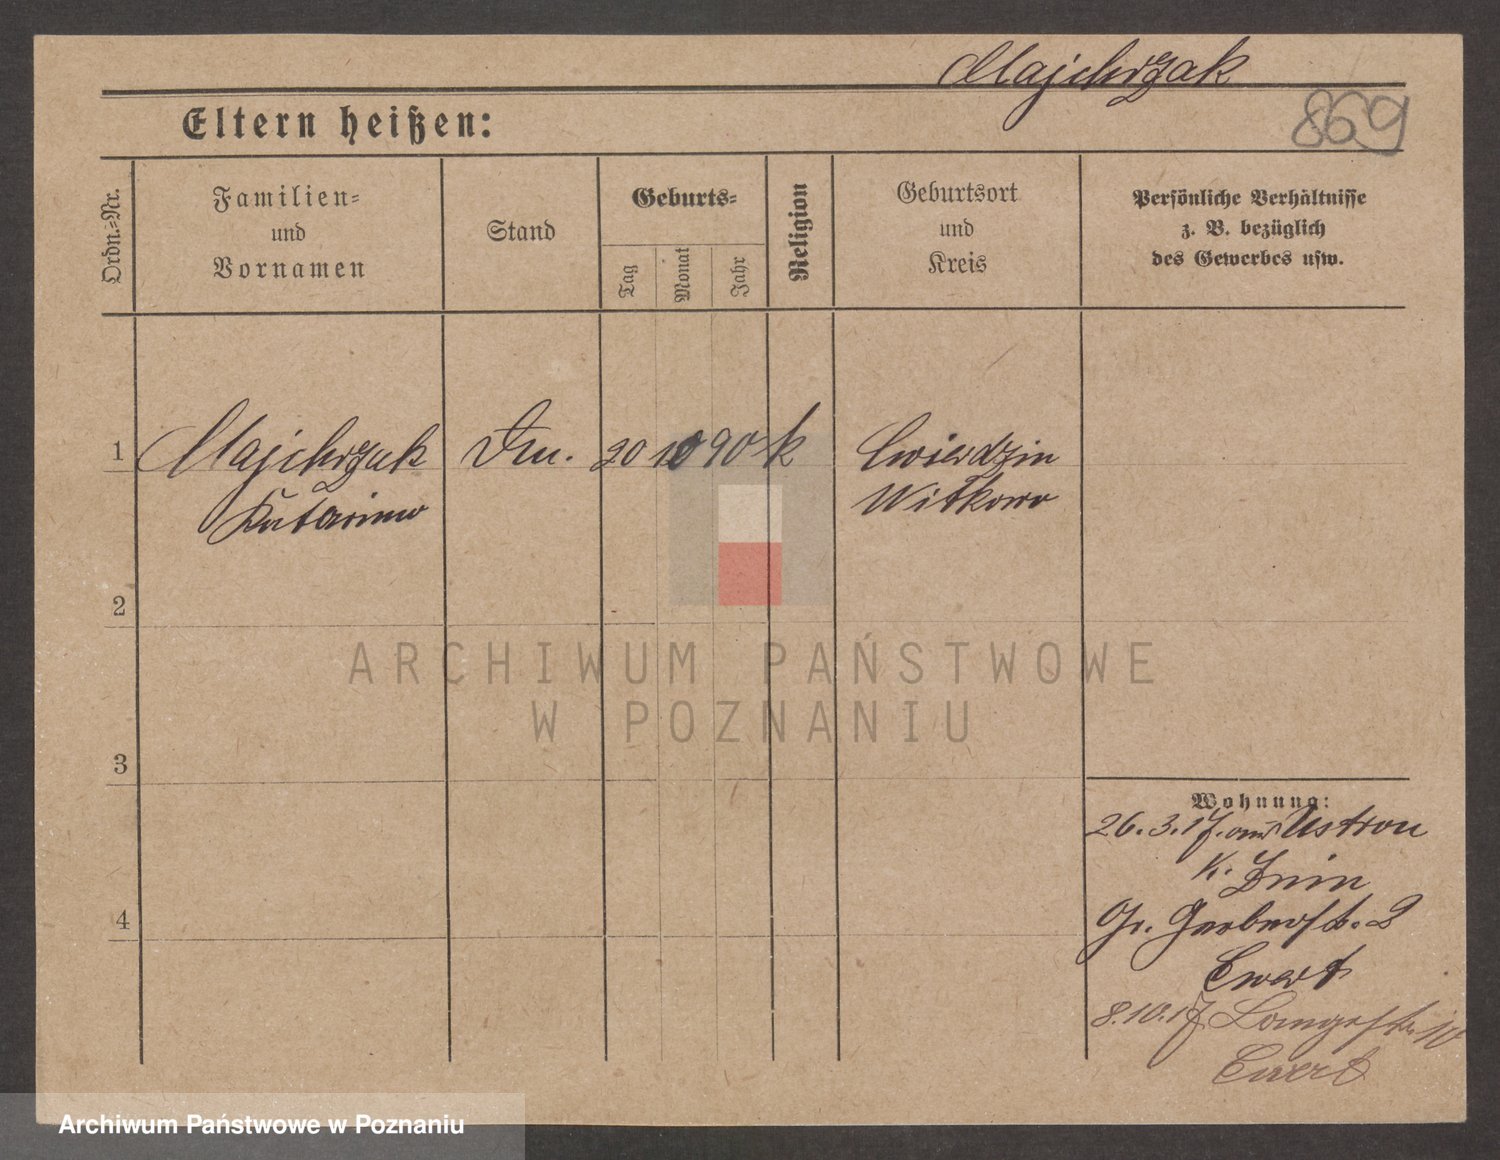 Majchrzak
869
Eltern heißen:
Ordn.=Nr.
Familien=
und
Vornamen
Stand
Geburts=
Tag
Monat
Jahr
Religion
Geburtsort
und
Kreis
Persönliche Verhältnisse
z. B. bezüglich
des Gewerbes usw.
1
Majchrzak
Katarina
20
10
90
k
Cwierdzin
Witkowo
2
ARCHIWUM PAŃSTWOWE
W POZNANIU
3
Wohnung:
26.3.17. aus Ustron
K. Znin
Gr. Gerberst. 2
Ewert
4
8.10.17 Langestr. 10
Ewert
Archiwum Państwowe w Poznaniu